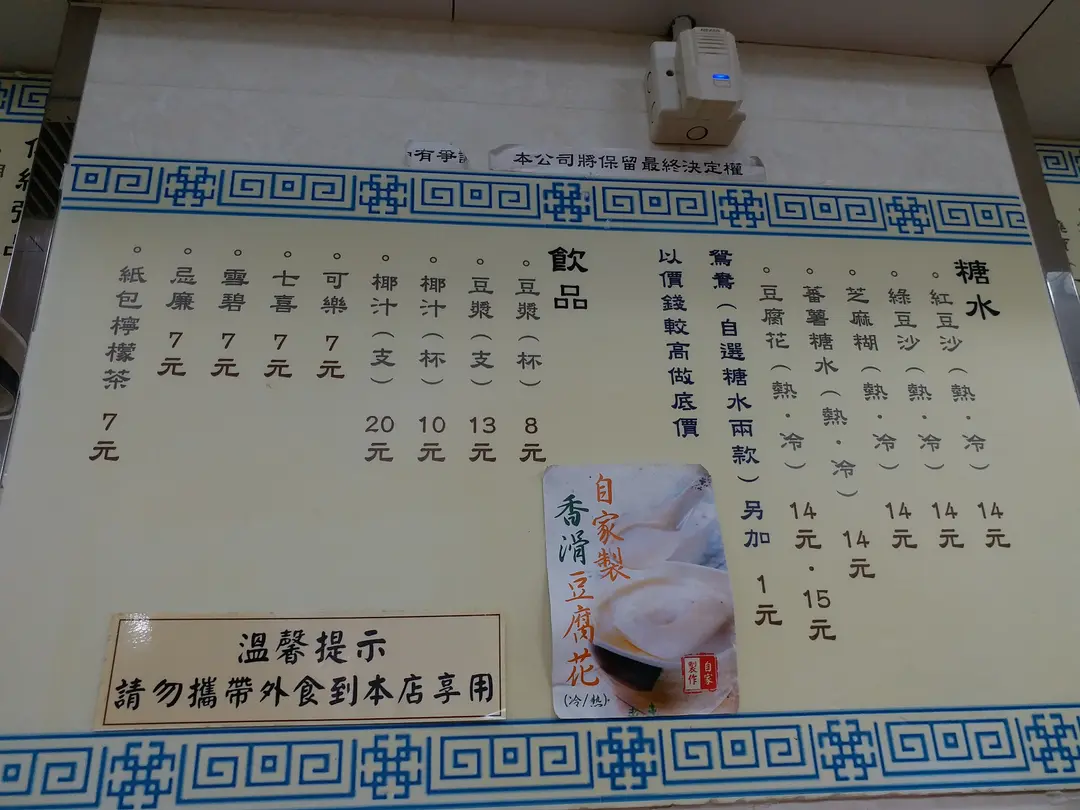 有爭
本公司將保留最終決定權
糖水
。紅豆沙（熱．冷）14元
。綠豆沙（熱．冷）14元
。芝麻糊（熱．冷）14元
。蕃薯糖水（熱．冷）14元
。豆腐花（熱．冷）14元．15元
鴛鴦（自選糖水兩款）另加 1元
以價錢較高做底價
飲品
。豆漿（杯）8元
。豆漿（支）13元
。椰汁（杯）10元
。椰汁（支）20元
。可樂 7元
。七喜 7元
。雪碧 7元
。忌廉 7元
。紙包檸檬茶 7元
自家製
香滑豆腐花
(冷/熱)
自家
製作
溫馨提示
請勿攜帶外食到本店享用